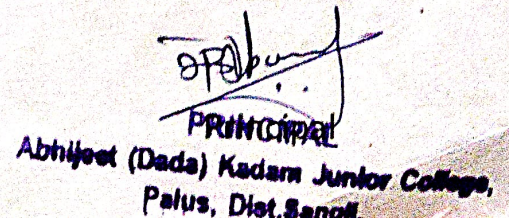 PRINCIPAL
Abhijeet (Dada) Kadam Junior College,
Palus, Dist.Sangli